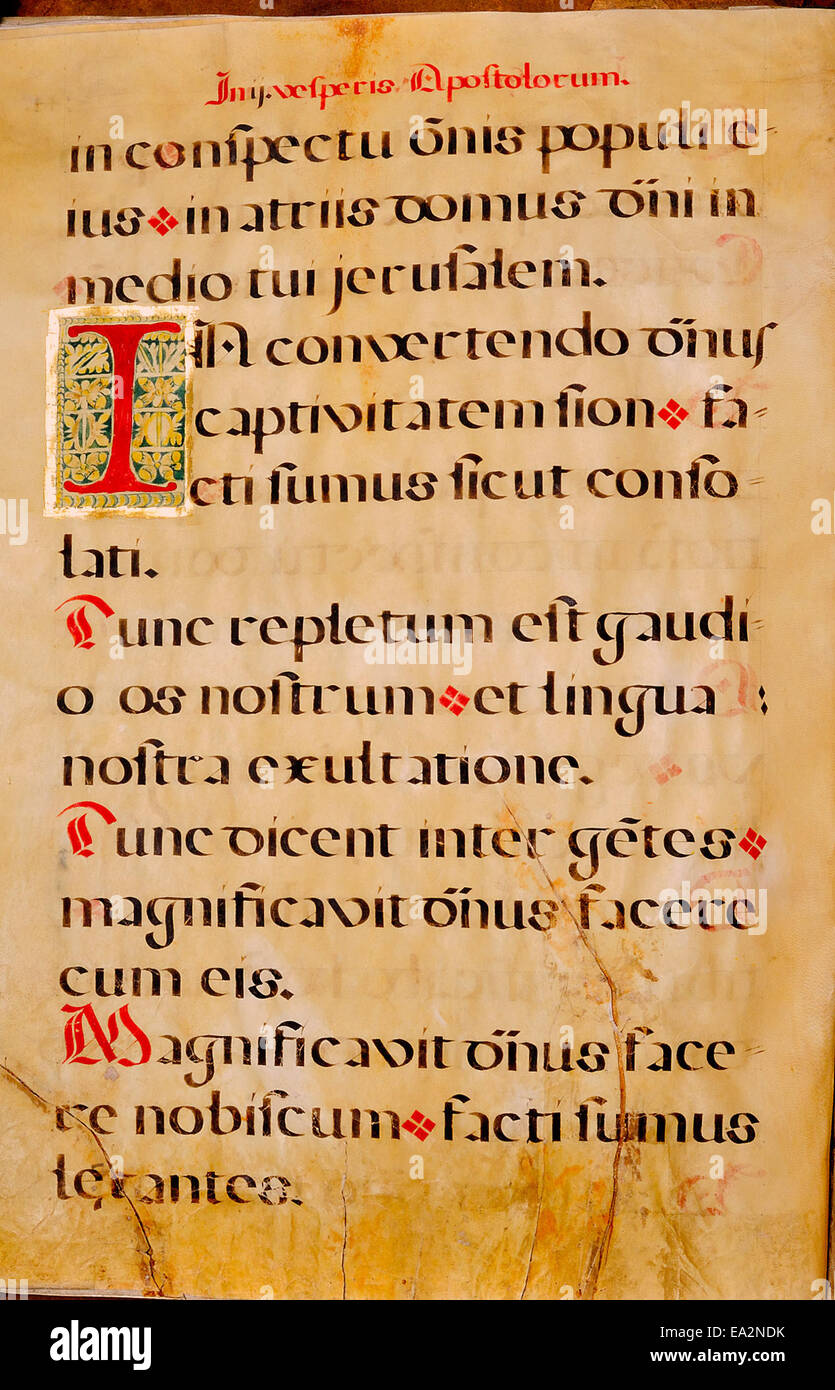 In ij. vesperis Apostolorum.
in conſpectu o᷃nis populi e-
ius in atriis domus dn᷃i in
medio tui jeruſalem.
IN convertendo dn᷃us
captivitatem ſion fa-
cti ſumus ſicut conſo
lati.
Tunc repletum eſt gaudi-
o os noſtrum et lingua :
noſtra exultatione.
Tunc dicent inter ge᷃tes
magnificavit dn᷃us facere
cum eis.
Magnificavit dn᷃us face-
re nobiſcum facti ſumus
lętantes.
alamy
alamy
alamy
alamy stock photo
EA2NDK
www.alamy.com